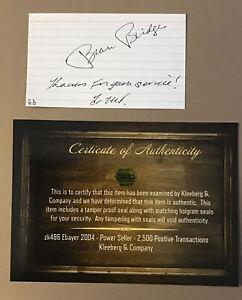 Beau Bridges
Thanks for your service!
Certicate of Authenticity
This is to certify that this item has been examined by Kleeberg &
Company and we have determined that this item is authentic. This
item includes a tamper proof seal along with matching holgram seals
for your security. Any tampering with seals will void authenticity.
zk486 Ebayer 2004 - Power Seller - 2,500 Postive Transactions
Kleeberg & Company